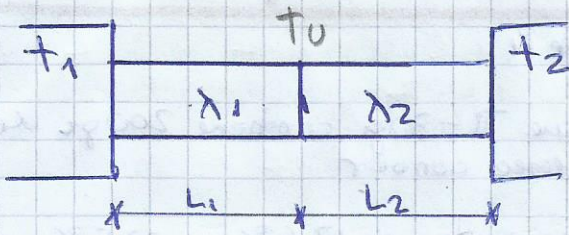 tu
t1 t2
λ1 λ2
L1 L2